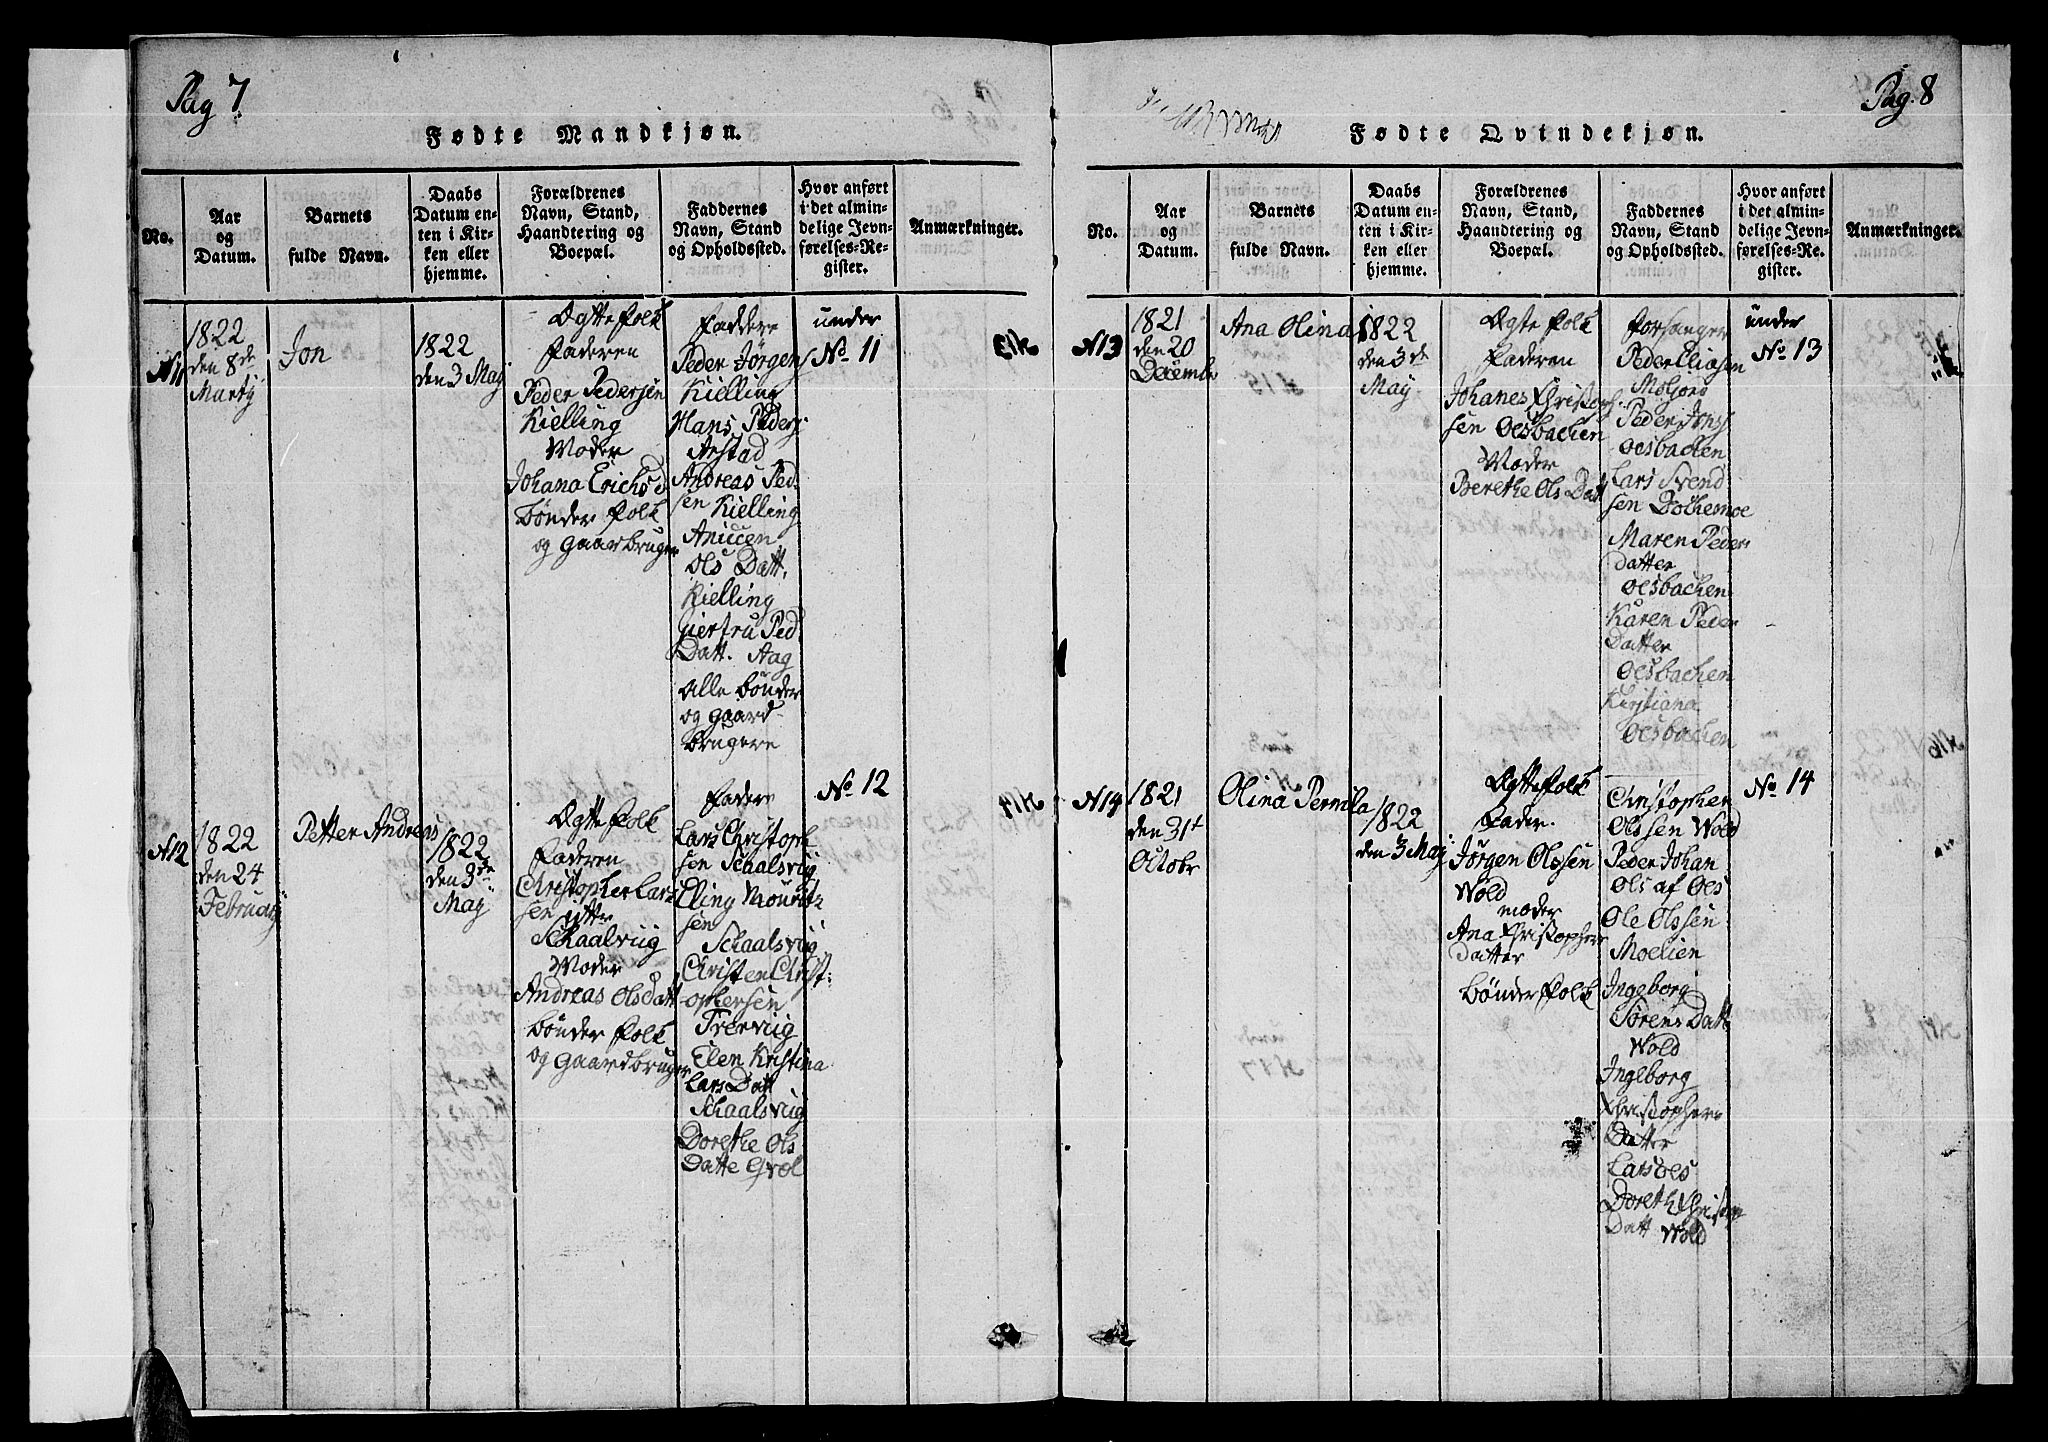 Pag 7
Fødte Mandkjøn.
No.
Aar
og
Datum.
Barnets
fulde Navn.
Daabs
Datum en-
ten i Kir-
ken eller
hjemme.
Forældrenes
Navn, Stand,
Haandtering og
Boepæl.
Faddernes
Navn, Stand
og Opholdssted.
Hvor anført
i det almin-
delige Jevn-
førelses-Re-
gister.
Anmærkninger.
N11
1822
den 8de
Martij
Jon
1822
den 3 Maj
Ægtte folk
Faderen
Peder Pedersen
Kielling
Moder
Johana Erichsd
bønder folk
og gaarbruger
Faddere
Peder Jörgens
Kielling
Hans Peders
Arstad
Andreas Ped-
sen Kielling
Anicen
Ols Datt.
Kielling
giertru Ped
Datt. Aag
Alle bönder
og gaard-
brugere
under
No 11
N12
1822
den 24
Februarij
Petter Andreas
1822
den 3de
Maj
Ægtte folk
Faderen
Christopher Lars
sen ytter
Schaalviig
Moder
Andreas Olsdatt
bönder folk
og gaardbruger
Fadere
Lars Christoph
sen Schaalsviig
Eling Mouritz
sen
Schaalsviig
Christen Christ:
ophersen
Trerviig
Elen Kristina
Lars Datt
Schaalsviig
Dorethe Ols
Datte Gröl
No 12
Pag. 8
Fødte Qvindekjøn.
No.
Aar
og
Datum.
Barnets
fulde Navn.
Daabs
Datum en-
ten i Kir-
ken eller
hjemme.
Forældrenes
Navn, Stand,
Haandtering og
Boepæl.
Faddernes
Navn, Stand
og Opholdssted.
Hvor anført
i det almin-
delige Jevn-
førelses-Re-
gister.
Anmærkninger.
N13
1821
den 20
Decembr
Ana Olina
1822
den 3de
May
Ægte folk
Faderen
Johanes Christoph
sen Oesbachen
Moder
Berethe Ols Datt
Forsanger
Peder Eliasen
Moljord
Peder Jons
oesbachen
Lars Svend
sen Dochemoe
Maren Peder
datter
oesbachen
Karen Peder
Datter
Oesbachen
Kirstiana
Oesbachen
under
No 13
N14
1821
den 31t
Octobr
Olina Pernila
1822
den 3 Maj
Ægttefolk
Fader.
Jørgen Olssen
Wold
moder
Ana Christopher
datter
bönder folk
Christopher
Olssen Wold
Peder Johan
Ols af Oes
Ole Olssen
Moelien
Ingeborg
Sörens Datt
Wold
Ingeborg
Christopher
Datter
Larsoes
Doreth Christop
Datt Wold
No 14